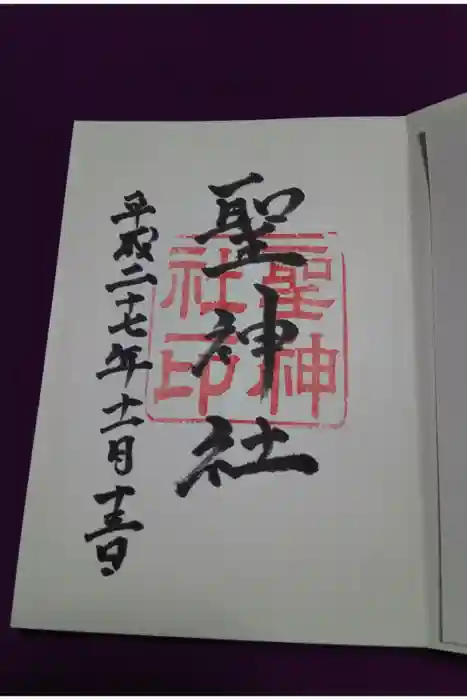 聖神社
聖神
社印
平成二十七年十一月十三日